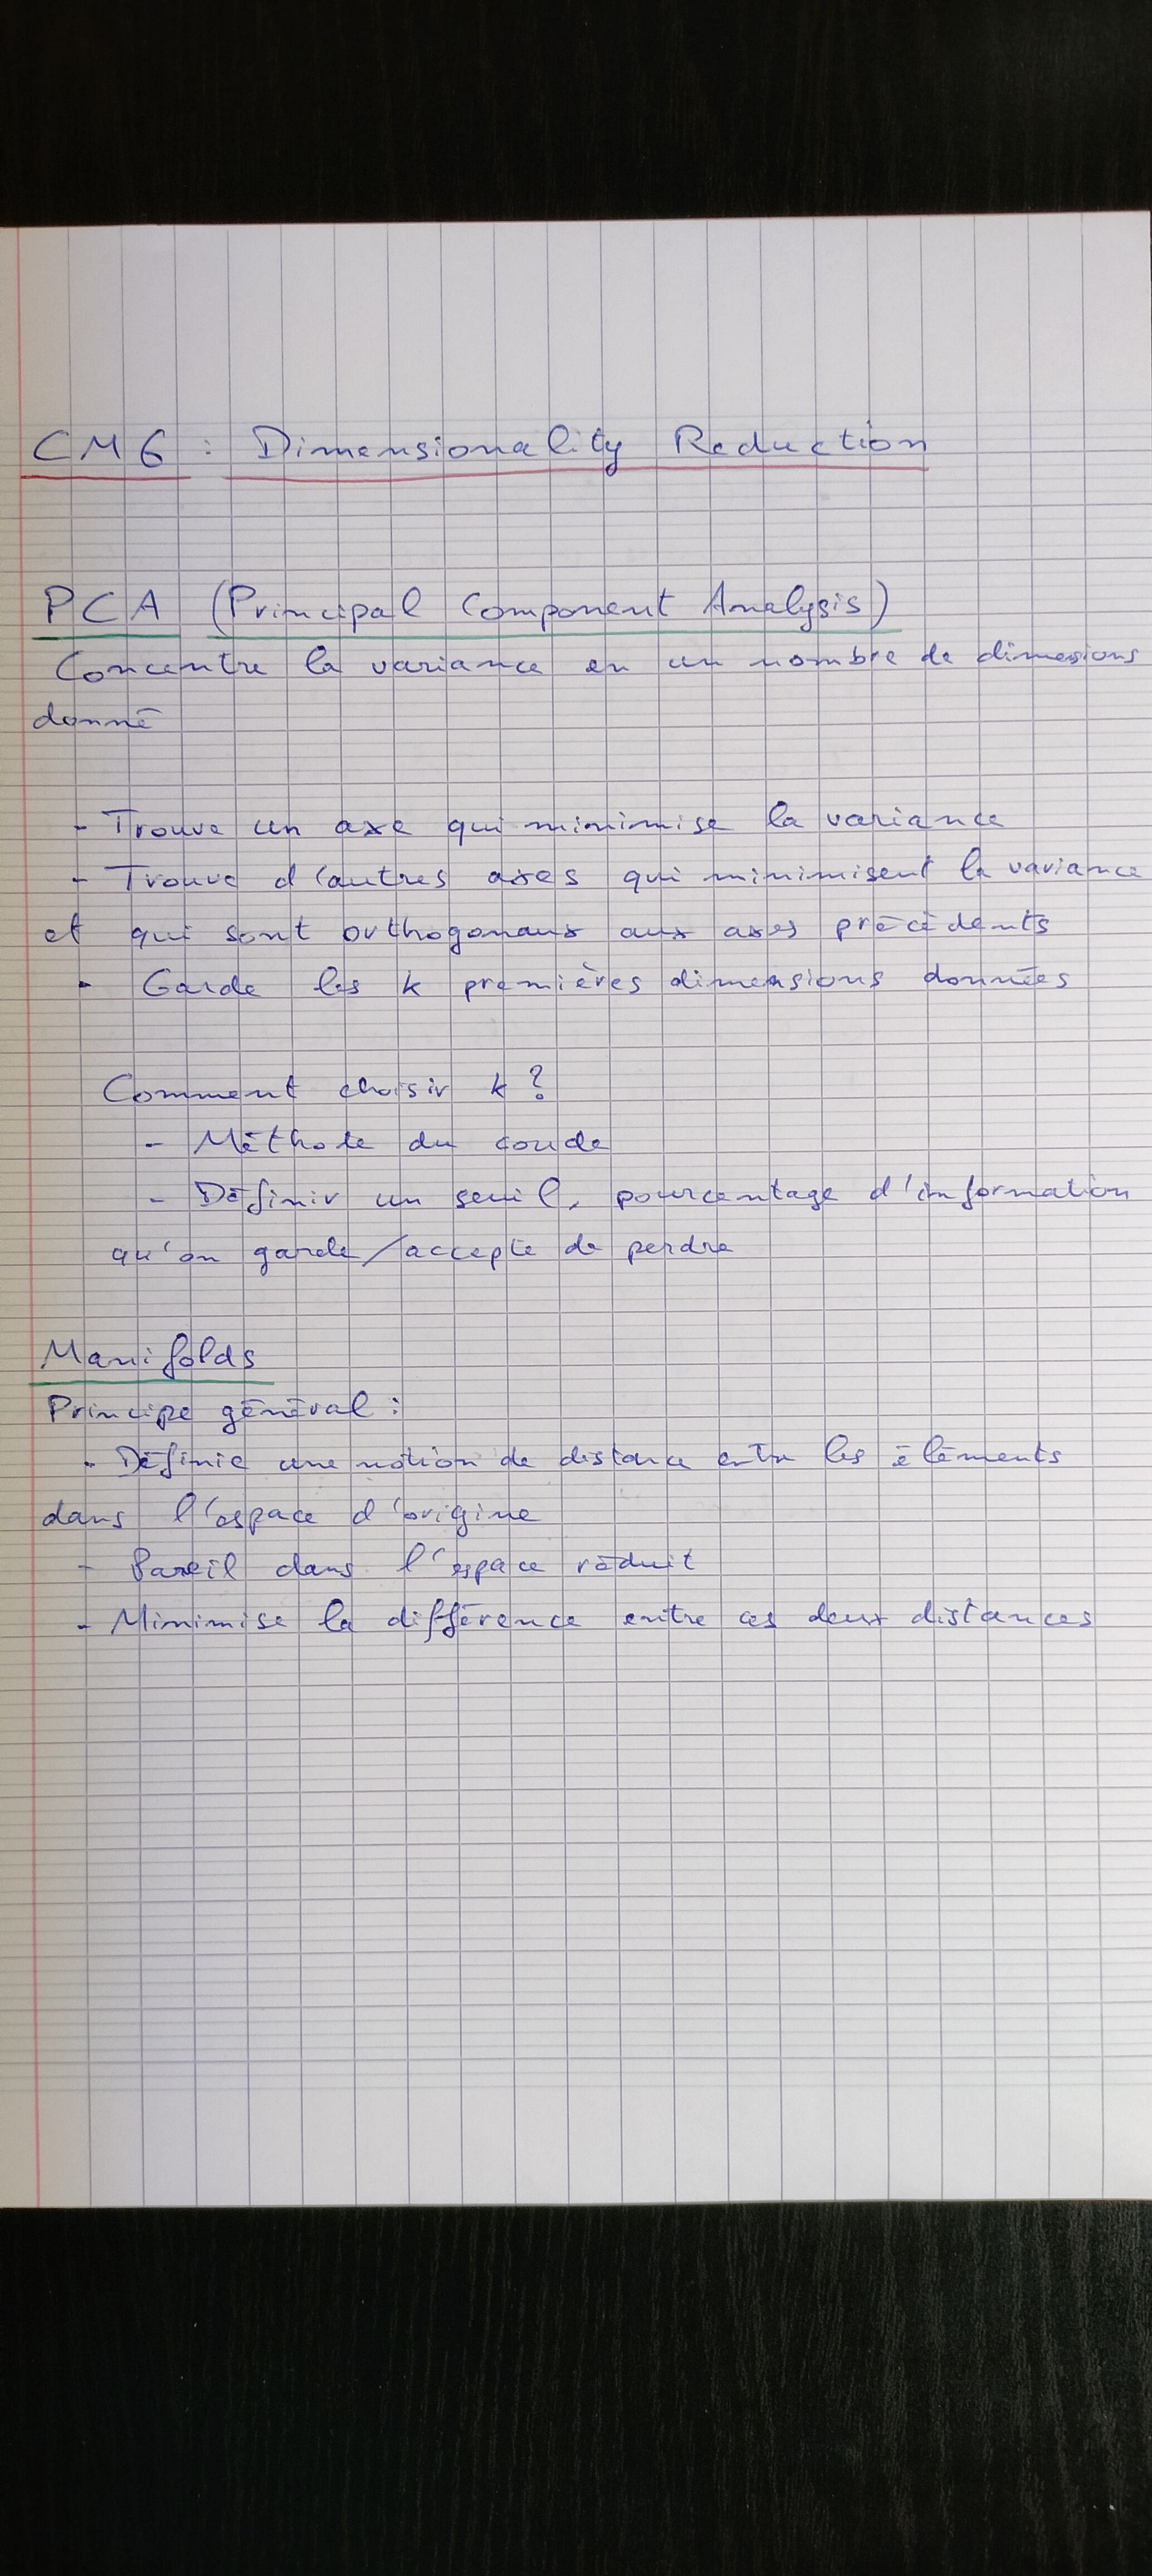 CM6 : Dimensionality Reduction
PCA (Principal Component Analysis)
Concentre la variance en un nombre de dimesions
donné
- Trouve un axe qui minimise la variance
- Trouve d'autres axes qui minimisent la variance
et qui sont orthogonaux aux axes précédents
- Garde les k premières dimensions données
Comment choisir k ?
- Méthode du coude
- Définir un seuil, pourcentage d'information
qu'on garde/accepte de perdre
Manifolds
Principe général :
- Définie une notion de distance entre les éléments
dans l'espace d'origine
- Pareil dans l'espace réduit
- Minimise la différence entre ces deux distances